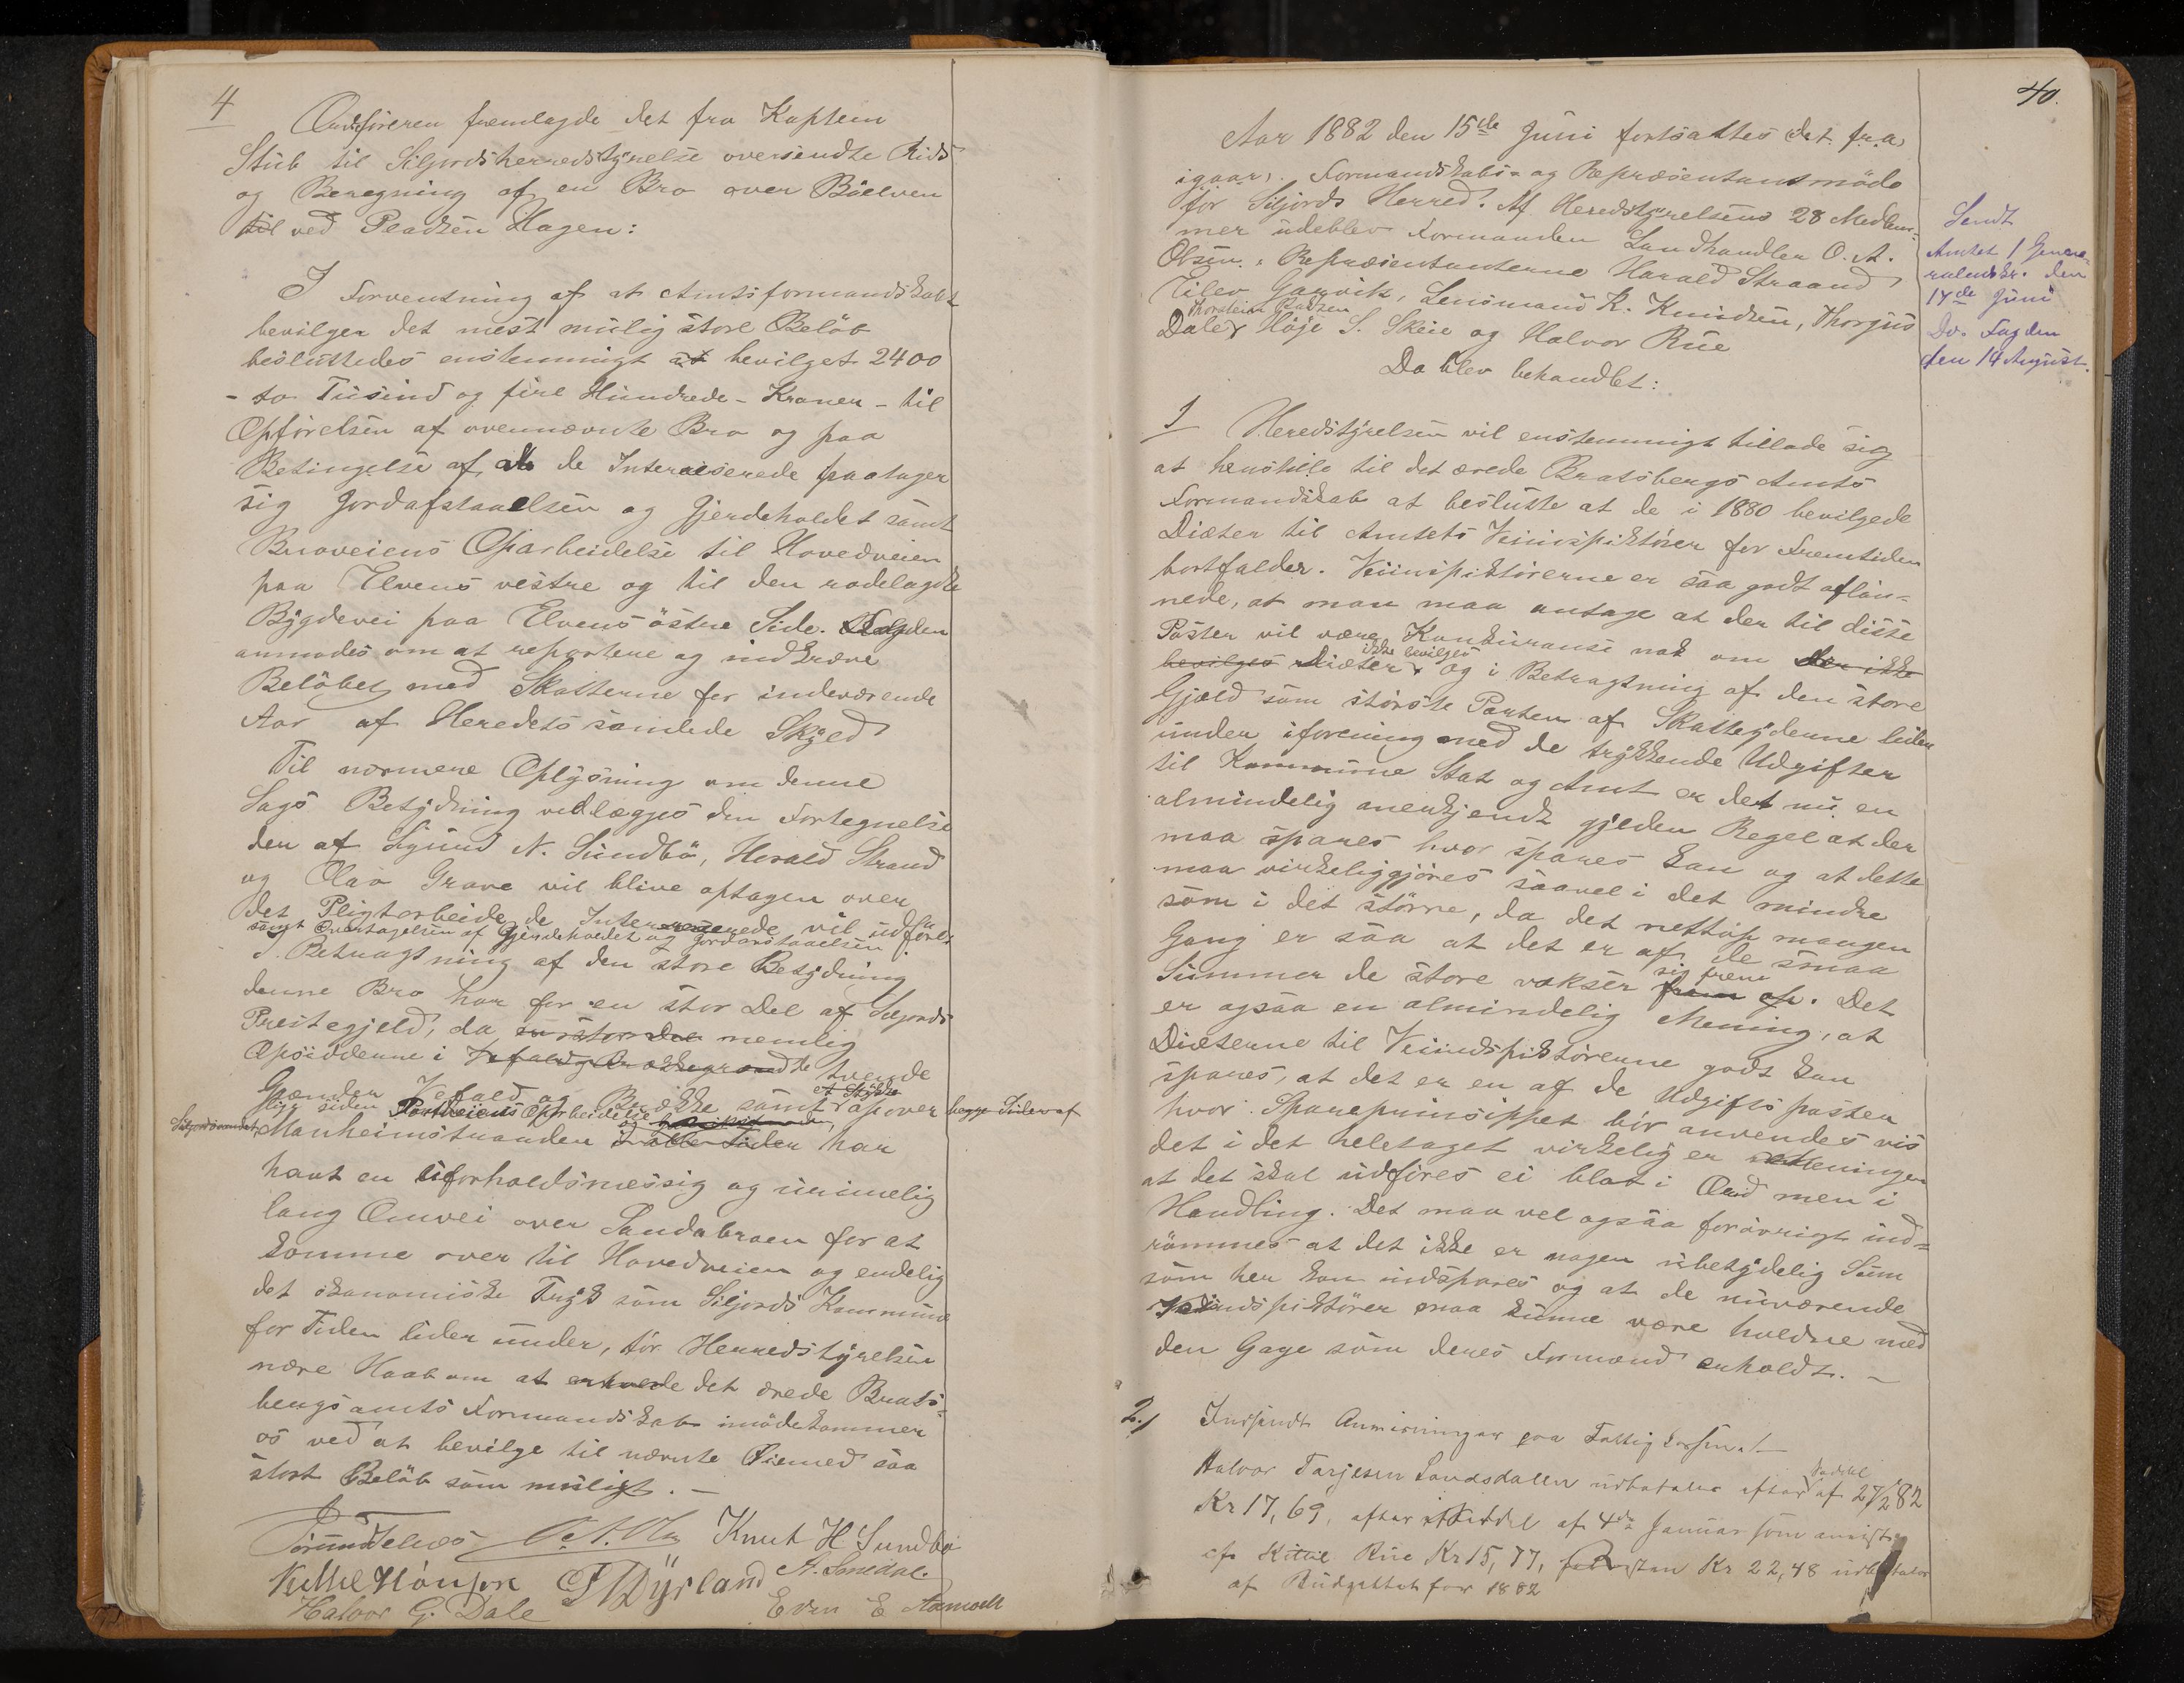 4
Ordføreren fremlagde det fra Kaptein
Stub til Siljords herredstyrelse oversendte Rids
og Beregning af en Bro over Böelven
til ved Peadsen Hagen:
I Forventning af at Amtsformandskabet
bevilger det mest mulig store Belöb
besluttedes enstemmigt at bevilget 2400
- to Tusind og fire Hundrede - Kroner - til
Opförelsen af ovennævnte Bro og paa
Betingelse af at de Interesserede paatager
sig Jordafstaaelsen og Gjerdeholdet samt
Broveiens Oparbeidelse til Hovedveien
paa Elvens vestre og til den rodelagdte
Bygdevei paa Elvens östre Side. Fogden
anmodes om at repartere og indkræve
Belöbet med Skatterne for indeværende
Aar af Heredets samlede Skyld
Til nærmere Oplysning om denne
Sags Betydning vedlægges den Fortegnelse
der af Sigurd N. Sundbö, Harald Strand
og Olav Grave vil blive optagen over
det Pligtarbeide de Interesserede vil udföret
samt Overtagelsen af Gjerdeholdet og Jordafstaaelsen
I Betragtning af den store Betydning
denne Bro har for en stor Del af Siljords
Prestegjeld, da en stor Del nemlig
Opsidderne i de tvende
Grænder Vefald og Brække samt et Stykke op over begge Sider af
Siljordsvandet, Manheimstranden i alle Tider har
havt en uforholdsmæssig og urimelig
lang Omvei over Sandabroen for at
komme over til Hovedveien og endelig
det ökonomiske Tryk som Siljords Kommune
for Tiden lider under, tör Herredstyrelsen
nære Haab om at det ærede Brats-
bergs amts Formandskab imödekommer
os ved at bevilge til nævnte Öiemed saa
stort Belöb som muligt. -
O. A. Olsen Knut H Sundbö
Kittel Hönsen Dyrland A. Smedal.
Halvor G. Dale Even E Aamodt
40.
Aar 1882 den 15de Juni fortsattes det fra
igaar. Formandskabs- og Repræsentantmöde
for Siljords Herred. Af Heredstyrelsens 28 Medlem-
mer udeblev Formanden Landhandler O. A.
Olsen. Repræsentanterne Harald Straand
Tilev Garvik, Lensmand K. Knudsen, Thorgus
Dale, Thorstein Höje S. Skeie og Halvor Rue
Da blev behandlet:
Sendt
Amtet / Gene-
ralenskr. den
17de Juni
Do. Fogden
den 14 August.
1 Heredstyrelsen vil enstemmigt tillade sig
at henstille til det ærede Bratsbergs Amts
Formandskab at beslutte at de i 1880 bevilgede
Diæter til Amtets Veiinspiktörer for Fremtiden
bortfalder. Veiinspiktörerne er saa godt aflön-
nede, at man maa antage at der til disse
Poster vil være Konkuranse nok om der ikke
bevilges Diæter ikke bevilges og i Betragtning af den store
Gjæld som störste Parten af Skatteyderne lider
under iforening med de trykkende Udgifter
til Kommune Stat og Amt er det nu en
almindelig anerkjendt gjelden Regel at der
maa spares hvor spares kan og at dette
maa virkeliggjöres saavel i det mindre
som i det större, da det nettop mangen
Gang er saa at det er af de smaa
Summer de store vokser sig frem op. Det
er ogsaa en almindelig Mening, at
Diæterne til Veiindspiktörerne godt kan
spares, at det er en af de Udgifts poster
hvor Spareprinsippet bör anvendes vis
det i det heletaget virkelig er Meningen
at det skal udföres ei blot i Ord men i
Handling. Det maa vel ogsaa forövrigt ind-
römmes at det ikke er nogen ubetydelig Sum
som her kan indspares og at de nuværende
Veiindspiktörer maa kunne være holdne med
den Gage som deres Formænd erholdt. -
2./ Indsendt Anvisninger paa Fattigkassen. /-
Halvor Tarjesen Landsdalen udbetales efter Seddel af 27/2 82
Kr 17,69, efter Seddel af 4de Januar som anvist
af Kittil Rue Kr 15,77, Kr 22,48 udbetales
af Budgettet for 1882